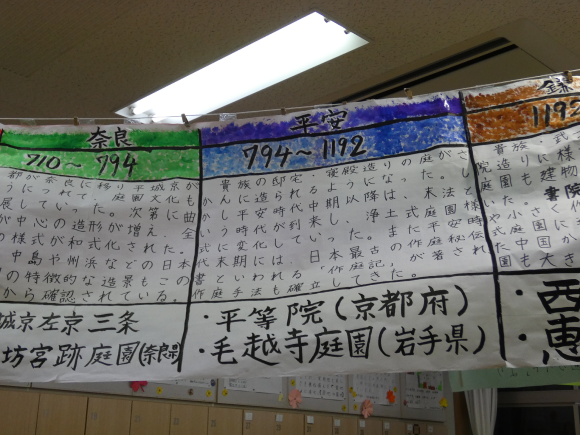 奈良
710～794
都が奈良に移り平城京が
うにつれて、庭園文化も
展していった。次第に曲
が中心の造形が増え、全
の様式が和式化された。
中島や州浜などの日本
の特徴的な造景もこの
から確認されている。
城京左京三条
坊宮跡庭園(奈良県)
平安
794～1192
貴族の邸宅、寝殿造りの庭がさ
かんに造られるようになった。し
かし平安時代中期以降は、末法と
いう時代が到来し、浄土式庭園様
式に変化していった。また平安時
代末期には、日本最古の作庭秘伝
書といわれる「作庭記」が著され
作庭手法も確立してきた。
・平等院(京都府)
・毛越寺庭園(岩手県)
鎌
1192
貴族 武
院造りに様
庭園も建物
書院
や小さく作
園も大き
・西
・恵